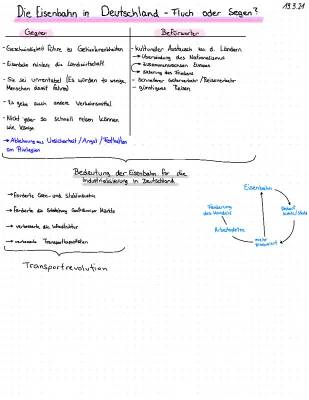 Die Eisenbahn in Deutschland - Fluch oder Segen?
19.3.21
Gegner
- Geschwindigkeit führe zu Gehirnkrankheiten
- Eisenbahn ruiniere die Landwirtschaft
- Sie sei unrentabel (Es würden zu wenige
Menschen damit fahren)
- Es gebe auch andere Verkehrsmittel
- Nicht jeder so schnell reisen können
wie Könige
→ Ablehnung aus Unsicherheit / Angst / Festhalten
an Privilegien
Befürworter
- kultureller Austausch zw. d. Ländern
→ Überwindung des Nationalismus
→ Zusammenwachsen Europas
→ Sicherung des Friedens
- Schnellerer Güterverkehr / Reiseverkehr
- günstigeres Reisen
Bedeutung der Eisenbahn für die
Industrialisierung in Deutschland
→ förderte Eisen- und Stahlindustrie
→ förderte die Entstehung Märkte
→ verbesserte die Infrastruktur
→ verbesserte Transportkapazitäten
Transportrevolution
Eisenbahn
Bedarf
mehr
produziert
Arbeitsplätze
Förderung
des Handels